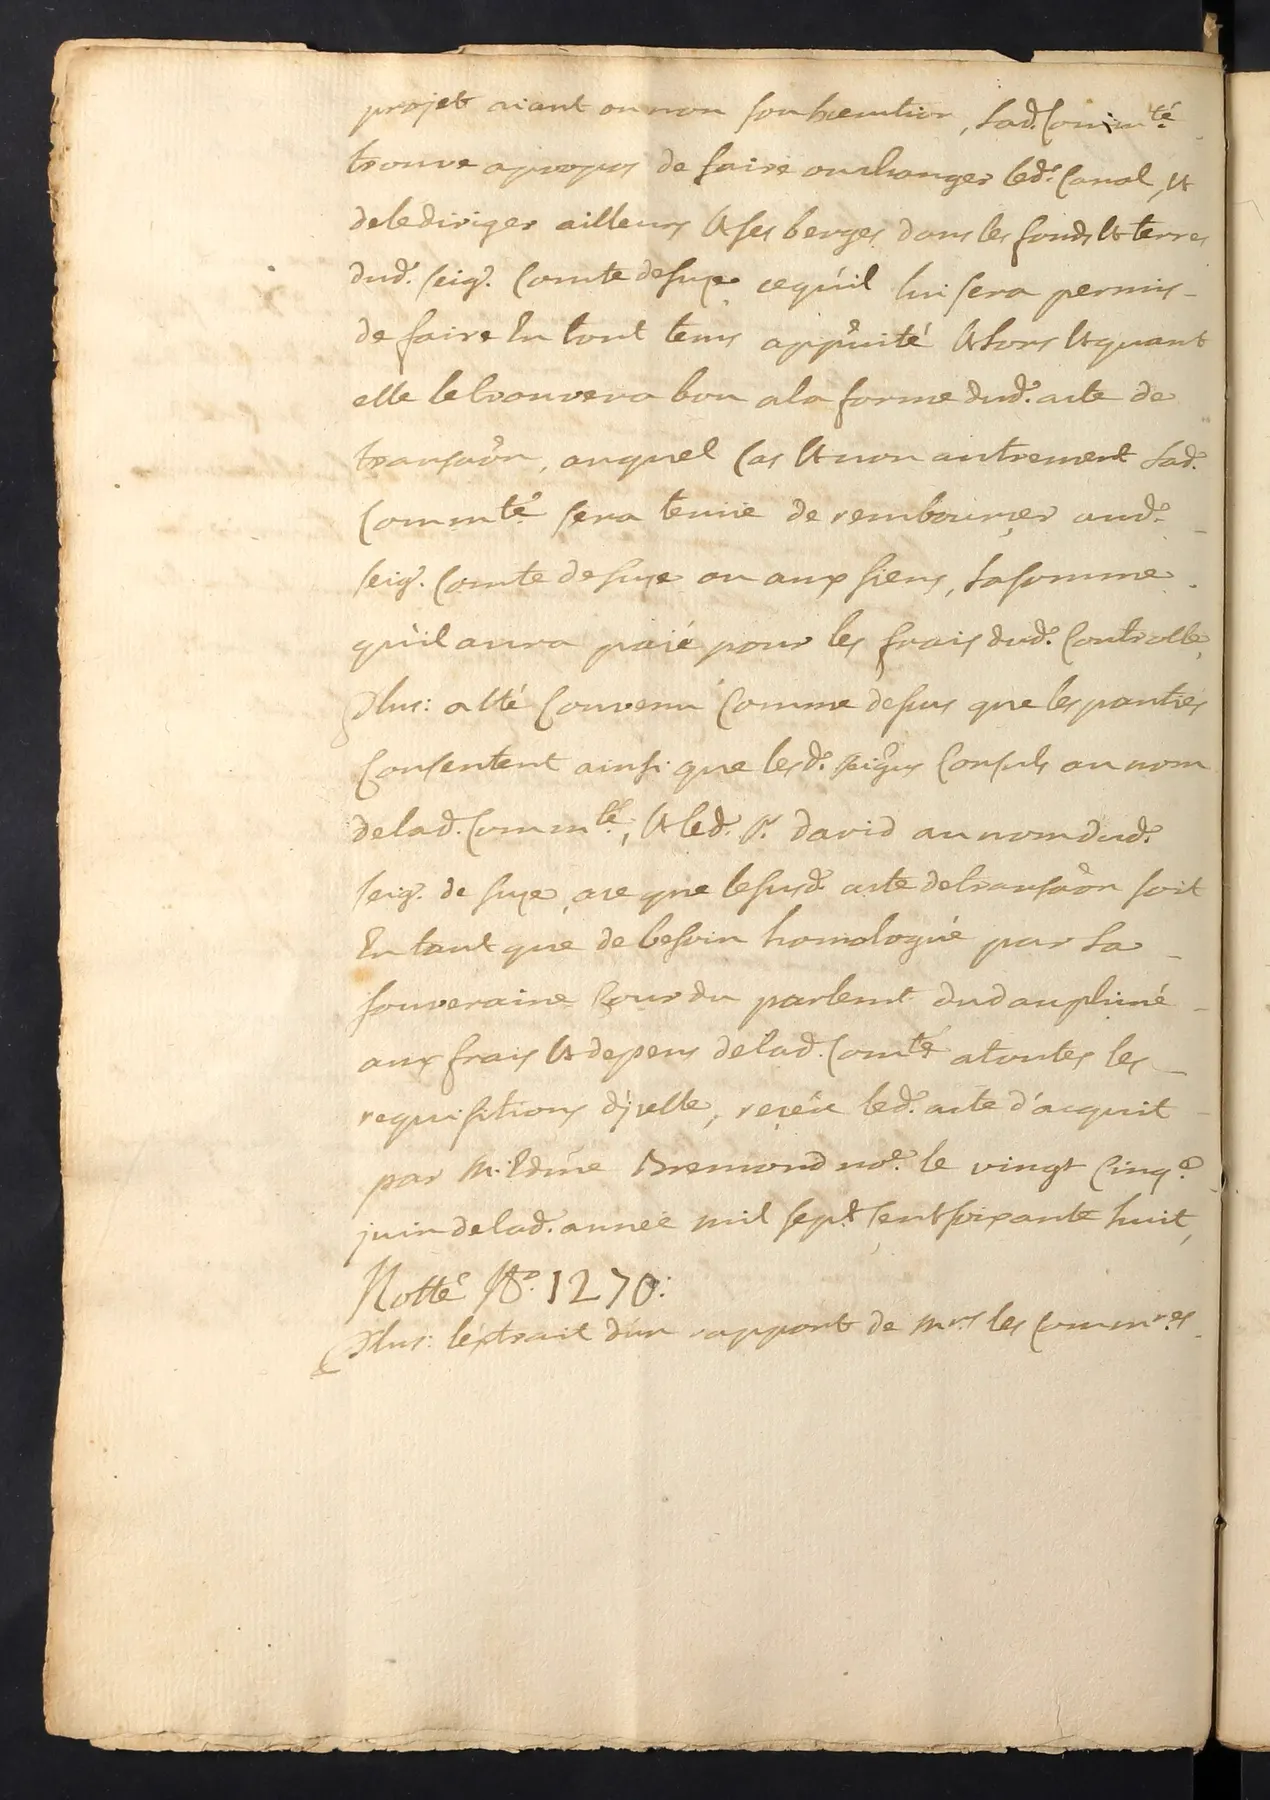 projet aiant ou non son execution, lad. Commté
trouve apropos de faire ou changer led. Canal, et
de le diriger ailleurs et ses berges dans les fonds et terres
dud. seigr. Comte de suze ce qu'il lui sera permis
de faire En tout tems et lors et quant
elle le trouvera bon a la forme dud. acte de
transaôn, auquel Cas et non autrement lad.
Commté sera tenüe de rembourcer aud.
seigr. Comte de suze ou aux siens, la somme
qu'il aura paié pour les frais dud. Controlle,
Plus: a été Convenu Comme dessus que les parties
Consentent ainsi que lesd. seigrs Consuls au nom
de lad. Commté, et led. sr. david au nom dud.
seigr. de suze, a ce que le susd. acte de transaôn soit
En tant que de besoin homologué par la
souveraine Cour du parlemt du dauphiné
aux frais et depens de lad. Comté a toutes les
requisitions d'jcelle, reçeu led. acte d'acquit
par m. Bremond nore. le vingt Cinq.e
juin de lad. année mil sept Cent soixante huit,
Notté No. 1270:
Plus: l'extrait d'un rapport de mrs les Commres